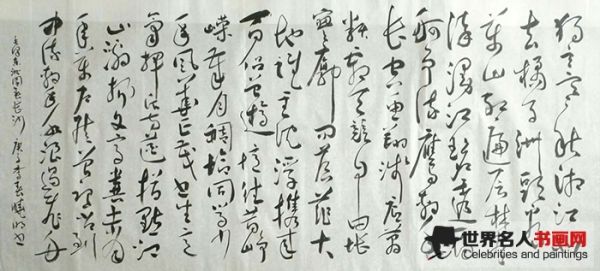 独立寒秋湘江
去橘子洲头看
万山红遍层林
染漫江碧透百
舸争流鹰击
长空鱼翔浅底万
类霜天竞自由怅
寥廓问苍茫大
地谁主沉浮携来
百侣曾游忆往昔峥
嵘岁月稠恰同学少
年风华正茂书生意
气挥斥方遒指点江
山激扬文字粪土当
年万户侯曾记否到
中流击水浪遏飞舟
毛泽东沁园春长沙 庚子
世界名人书画网
Celebrities and paintings